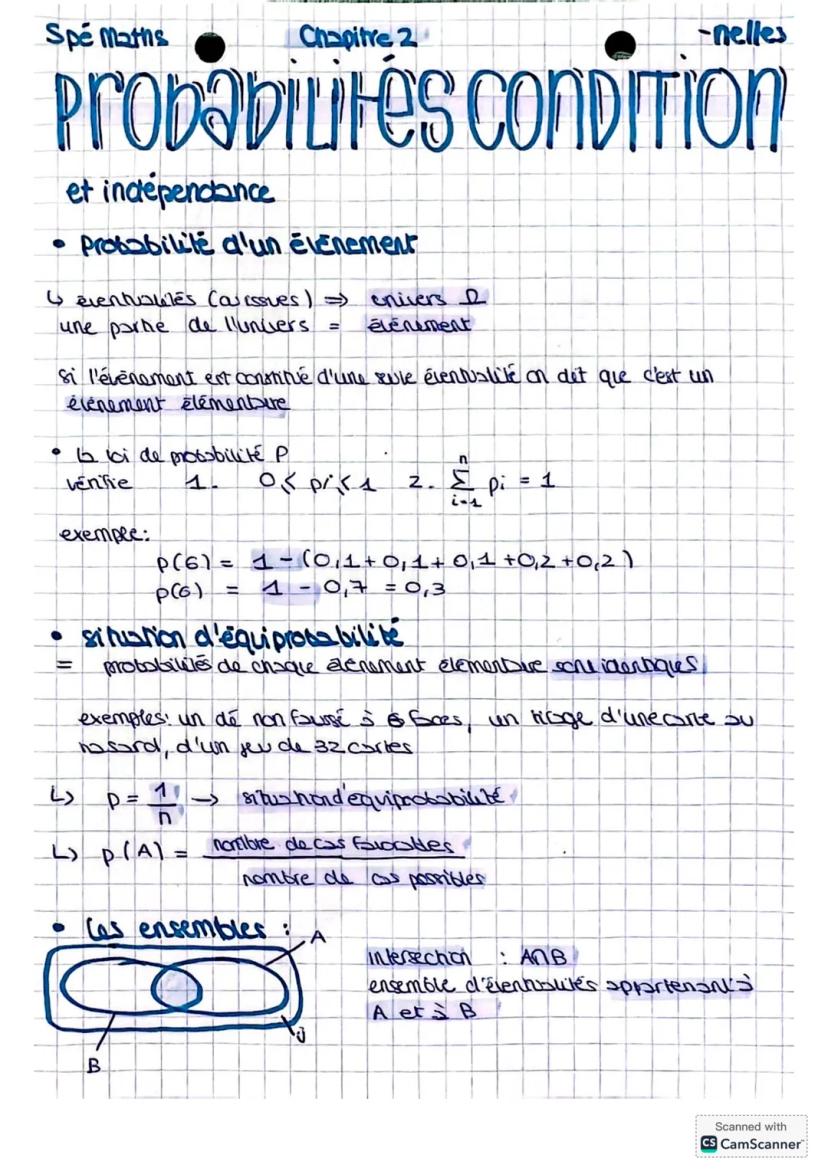 Spé Maths Chapitre 2 -nelles
Probabilités condition
et indépendance
• Probabilité d'un événement
↳ éventualités (ou issues) => univers Ω
une partie de l'univers = événement
si l'événement est constitué d'une seule éventualité on dit que c'est un
événement élémentaire
• la loi de probabilité P
vérifie 1. 0 ≤ pi ≤ 1 2. ∑ᵢ₌₁ⁿ pi = 1
exemple:
p(6) = 1 - (0,1 + 0,1 + 0,1 + 0,2 + 0,2)
p(6) = 1 - 0,7 = 0,3
• situation d'équiprobabilité
= probabilités de chaque événement élémentaire sont identiques
exemples: un dé non faussé à 6 faces, un tirage d'une carte au
hasard, d'un jeu de 32 cartes
↳ p = 1/n → situation d'équiprobabilité
↳ p(A) = nombre de cas favorables
nombre de cas possibles
• Les ensembles :
A
intersection : A∩B
ensemble d'éventualités appartenant à
A et à B
B
Scanned with
CS CamScanner